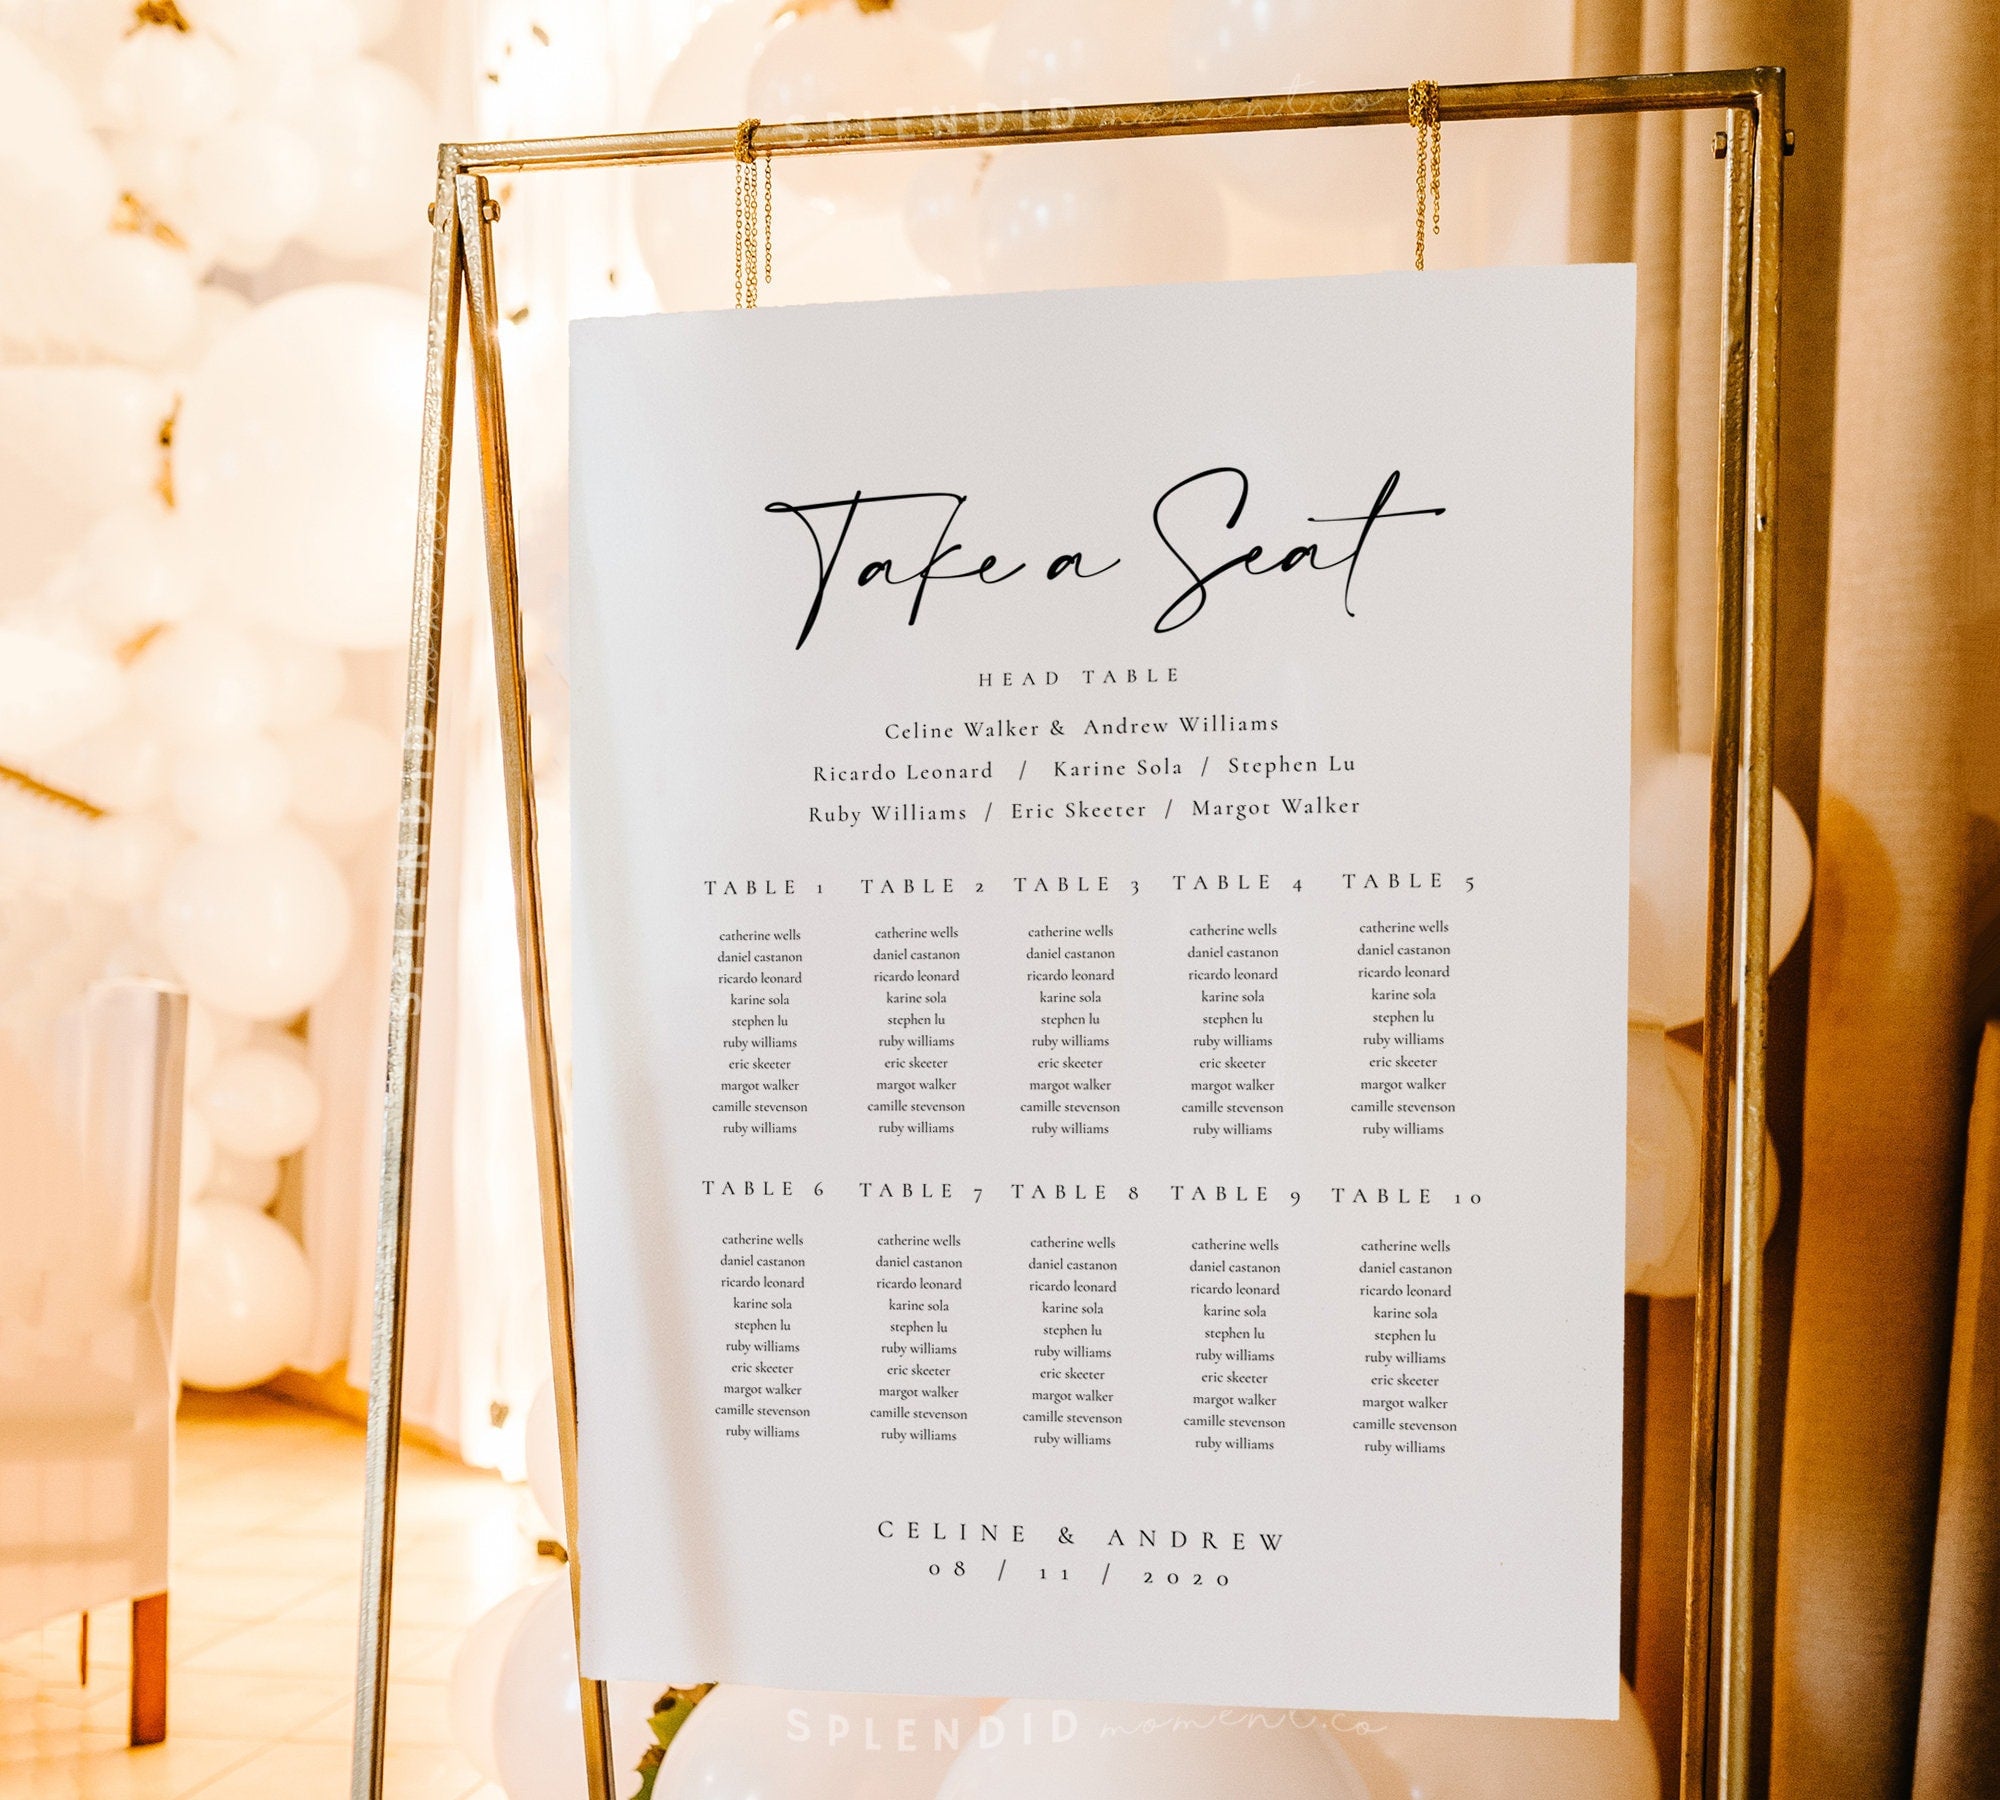 SPLENDID moment.co
Take a Seat
HEAD TABLE
Celine Walker & Andrew Williams
Ricardo Leonard / Karine Sola / Stephen Lu
Ruby Williams / Eric Skeeter / Margot Walker
TABLE 1 TABLE 2 TABLE 3 TABLE 4 TABLE 5
catherine wells catherine wells catherine wells catherine wells catherine wells
daniel castanon daniel castanon daniel castanon daniel castanon daniel castanon
ricardo leonard ricardo leonard ricardo leonard ricardo leonard ricardo leonard
karine sola karine sola karine sola karine sola karine sola
stephen lu stephen lu stephen lu stephen lu stephen lu
ruby williams ruby williams ruby williams ruby williams ruby williams
eric skeeter eric skeeter eric skeeter eric skeeter eric skeeter
margot walker margot walker margot walker margot walker margot walker
camille stevenson camille stevenson camille stevenson camille stevenson camille stevenson
ruby williams ruby williams ruby williams ruby williams ruby williams
TABLE 6 TABLE 7 TABLE 8 TABLE 9 TABLE 10
catherine wells catherine wells catherine wells catherine wells catherine wells
daniel castanon daniel castanon daniel castanon daniel castanon daniel castanon
ricardo leonard ricardo leonard ricardo leonard ricardo leonard ricardo leonard
karine sola karine sola karine sola karine sola karine sola
stephen lu stephen lu stephen lu stephen lu stephen lu
ruby williams ruby williams ruby williams ruby williams ruby williams
eric skeeter eric skeeter eric skeeter eric skeeter eric skeeter
margot walker margot walker margot walker margot walker margot walker
camille stevenson camille stevenson camille stevenson camille stevenson camille stevenson
ruby williams ruby williams ruby williams ruby williams ruby williams
CELINE & ANDREW
08 / 11 / 2020
SPLENDID moment.co
SPLENDID moment.co